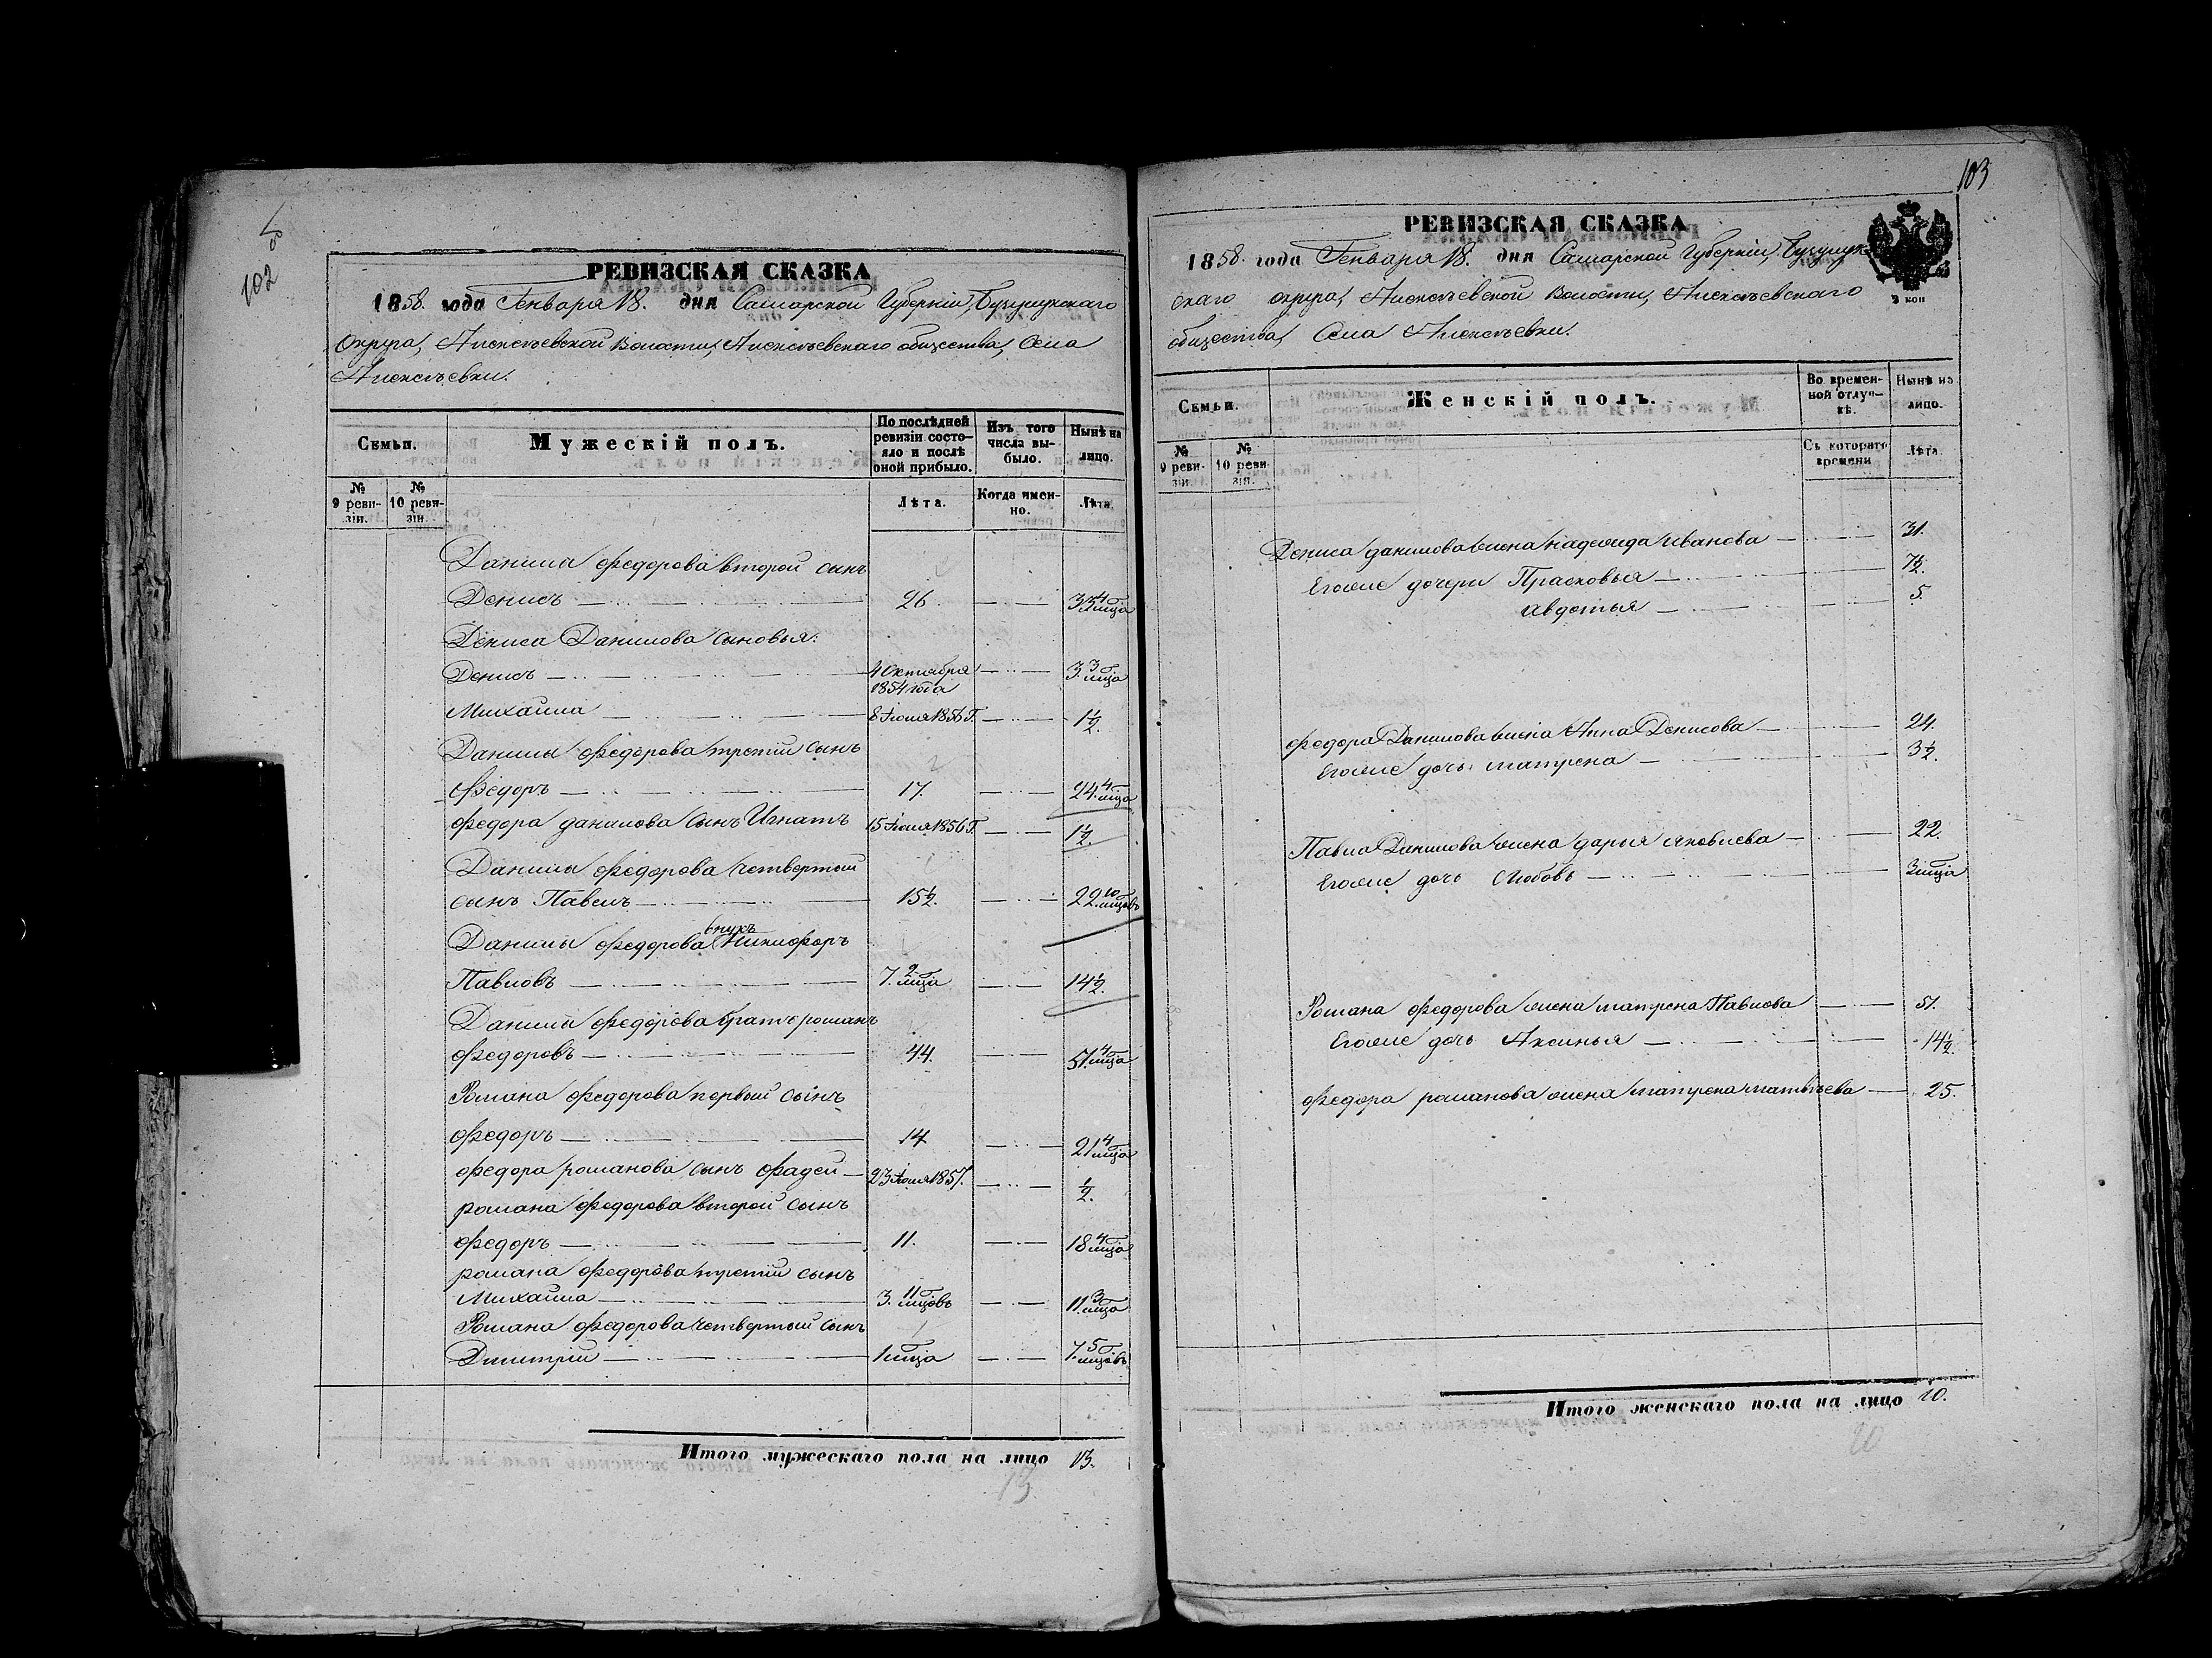 102 об
РЕВИЗСКАЯ СКАЗКА
1858. года Генваря 18. дня Самарской Губерніи, Бузулукскаго
Округа, Алексѣевской Волости, Алексѣевскаго общества, Села
Алексѣевки.
Семьи. Мужескій полъ. По послѣдней ревизіи состояло и послѣ оной прибыло. Изъ того числа выбыло. Нынѣ на лицо.
№ 9 ревизіи. № 10 ревизіи. Лѣта. Когда именно. Лѣта.
Данила федорова второй сынъ
Денисъ — 26 — 33. 4 мца
Дениса Данилова сыновья:
Денисъ — 4 Октября 1854 года — 3. 3 мца
Михайла — 8 Іюля 1856 Г. — 1 1/2.
Данилы федорова третій сынъ
Федоръ — 17. — 24. 4 мца
федора данилова сынъ Игнатъ 15 Іюля 1856 Г. — 1 1/2.
Данилы федорова четвертый
сынъ Павелъ — 15 1/2. — 22. 10 мцовъ
Данилы федорова внукъ Никифоръ
Павловъ — 7. 2 мца — 14 1/2.
Данилы федорова братъ романъ
федоровъ — 44. — 51. 4 мца
Романа федорова первый сынъ
федоръ — 14 — 21 4 мца
федора романова сынъ фадей — 23 Іюля 1857. — 1/2.
романа федорова второй сынъ
федоръ — 11. — 18 4 мца
романа федорова третій сынъ
Михайла — 3. 11 мцовъ — 11. 3 мца
Романа федорова четвертый сынъ
Дмитрій — 1 мца — 7. 5 мцовъ
Итого мужескаго пола на лицо 13.
13
103
РЕВИЗСКАЯ СКАЗКА
1858. года Генваря 18. дня Самарской Губерніи, Бузулук-
скаго округа, Алексѣевской Волости, Алексѣевскаго
общества, Села Алексѣевки.
2 коп
Семьи. Женскій полъ. Во временной отлучкѣ. Нынѣ на лицо.
№ 9 ревизіи. № 10 ревизіи. Съ котораго времени Лѣта.
Дениса данилова жена надежда иванова — 31.
Егоже дочери Прасковья — 7 1/2.
авдотья — 5.
федора Данилова жена Анна Денисова — 24.
Егоже дочь матрена — 3 1/2.
Павла Данилова жена дарья яковлева — 22.
Егоже дочь Любовь — 3 мца
Романа федорова жена матрена Павлова — 51.
Егоже дочь Аксинья — 14 1/2.
федора романова жена матрена матвѣева — 25.
Итого женскаго пола на лицо 10.
10